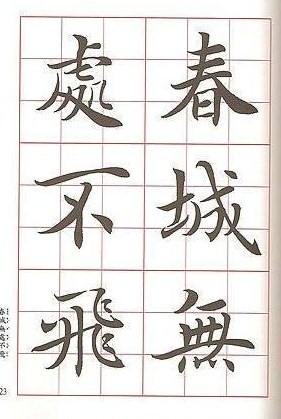 春城無
處不飛
春城無處不飛
23